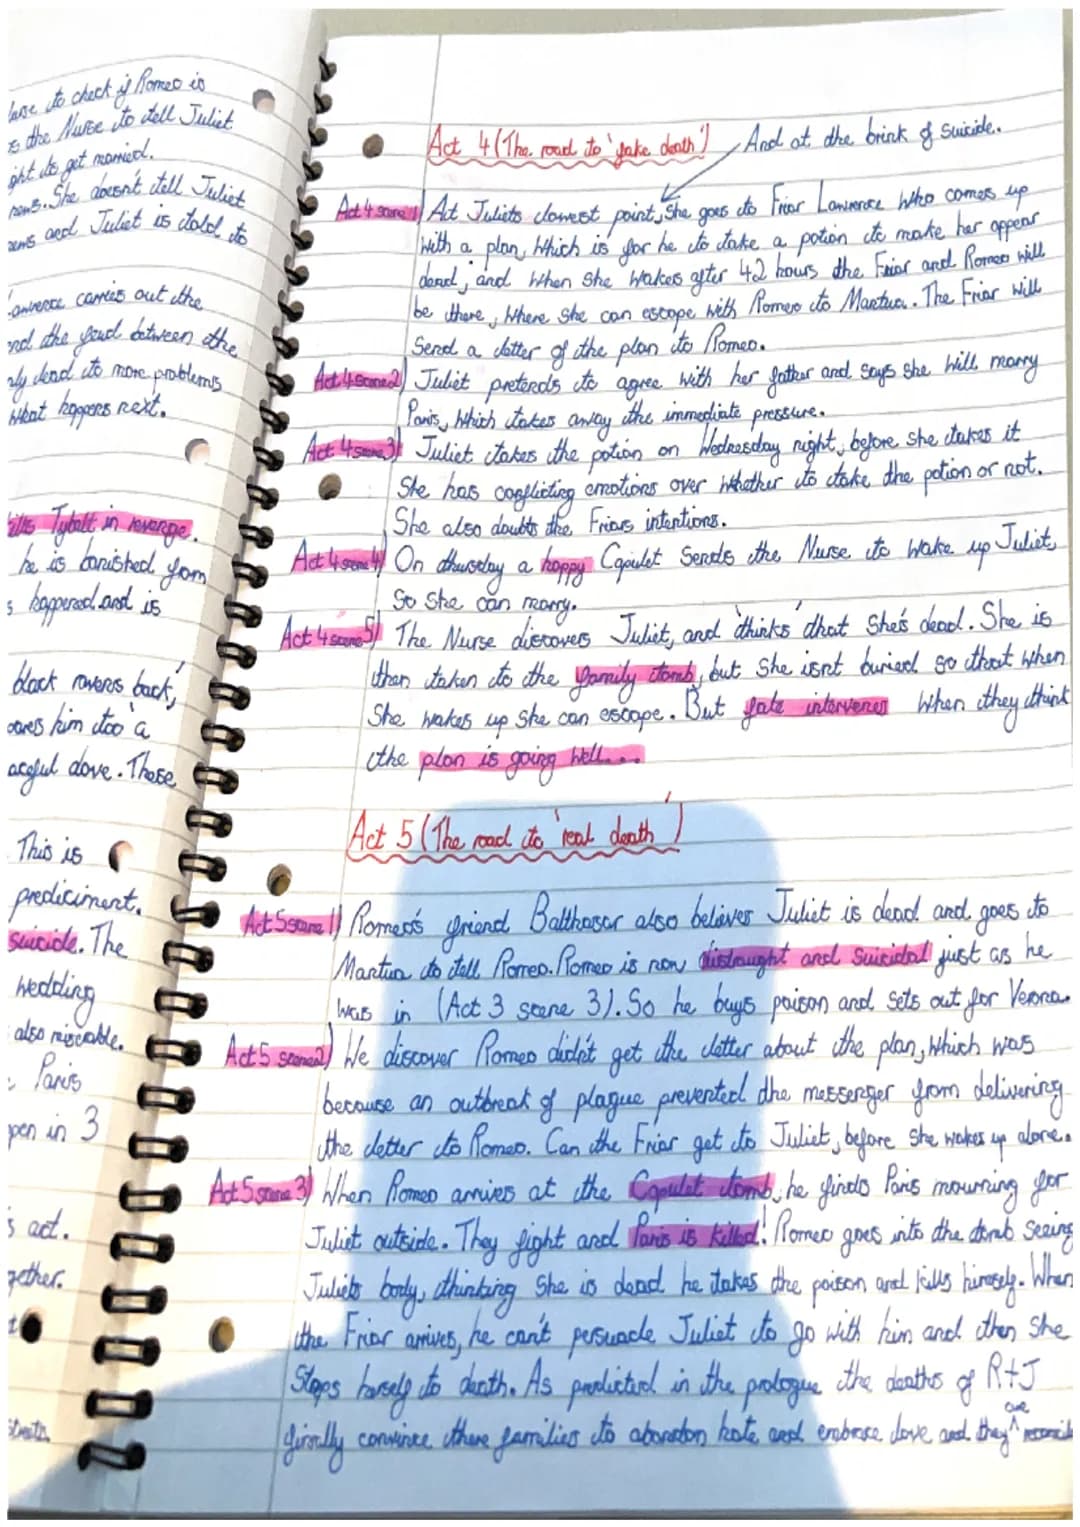 to check if Romeo is
the Nurse to tell Juliet
ght to get married.
news. She doesn't tell Juliet
ews and Juliet is told to
awrence carries out the
end the feud between the
nly dead to more problems
what happens next.
kills Tybalt in revenge.
he is banished from
s happened and is
black ravens back,'
pares him too 'a
aceful dove. These
This is
predicíment.
suicide. The
wedding
also miserable.
Paris
pen in 3
s act.
gether.
Act 4 (The road to 'fake death')
And at the brink of suicide.
Act 4 scene 1) Act Juliets lowest point, she goes to Friar Lawrence who comes up
with a plan, which is for he to take a potion to make her appear
dead, and when she wakes after 42 hours the Friar and Romeo will
be there, where she can escape with Romeo to Mantua. The Friar will
send a letter of the plan to Romeo.
Act 4 scene 2) Juliet pretends to agree with her father and says she will marry
Paris, which takes away the immediate pressure.
Act 4 scene 3) Juliet takes the potion on Wednesday night, before she takes it
she has conflicting emotions over whether to take the potion or not.
She also doubts the Friars intentions.
Act 4 scene 4) On thursday a happy Capulet sends the Nurse to wake up Juliet,
so she can marry.
Act 4 scene 5) The Nurse discovers Juliet, and 'thinks' that she's dead. She is
then taken to the family tomb, but she isnt buried so that when
she wakes up she can escape. But fate intervenes when they think
the plan is going well...
Act 5 (The road to 'real death')
Act 5 scene 1) Romeo's friend Balthasar also believes Juliet is dead and goes to
Mantua to tell Romeo. Romeo is now distraught and suicidal just as he
was in (Act 3 scene 3). So he buys poison and sets out for Verona.
Act 5 scene 2) We discover Romeo didn't get the letter about the plan, which was
because an outbreak of plague prevented the messenger from delivering
the letter to Romeo. Can the Friar get to Juliet, before she wakes up alone.
Act 5 scene 3) When Romeo arrives at the Capulet tomb, he finds Paris mourning for
Juliet outside. They fight and Paris is killed! Romeo goes into the tomb seeing
Juliets body, thinking she is dead he takes the poison and kills himself. When
the Friar arrives, he can't persuade Juliet to go with him and then she
stabs herself to death. As predicted in the prologue the deaths of R+J
finally convince there families to abandon hate and embrace love and they are